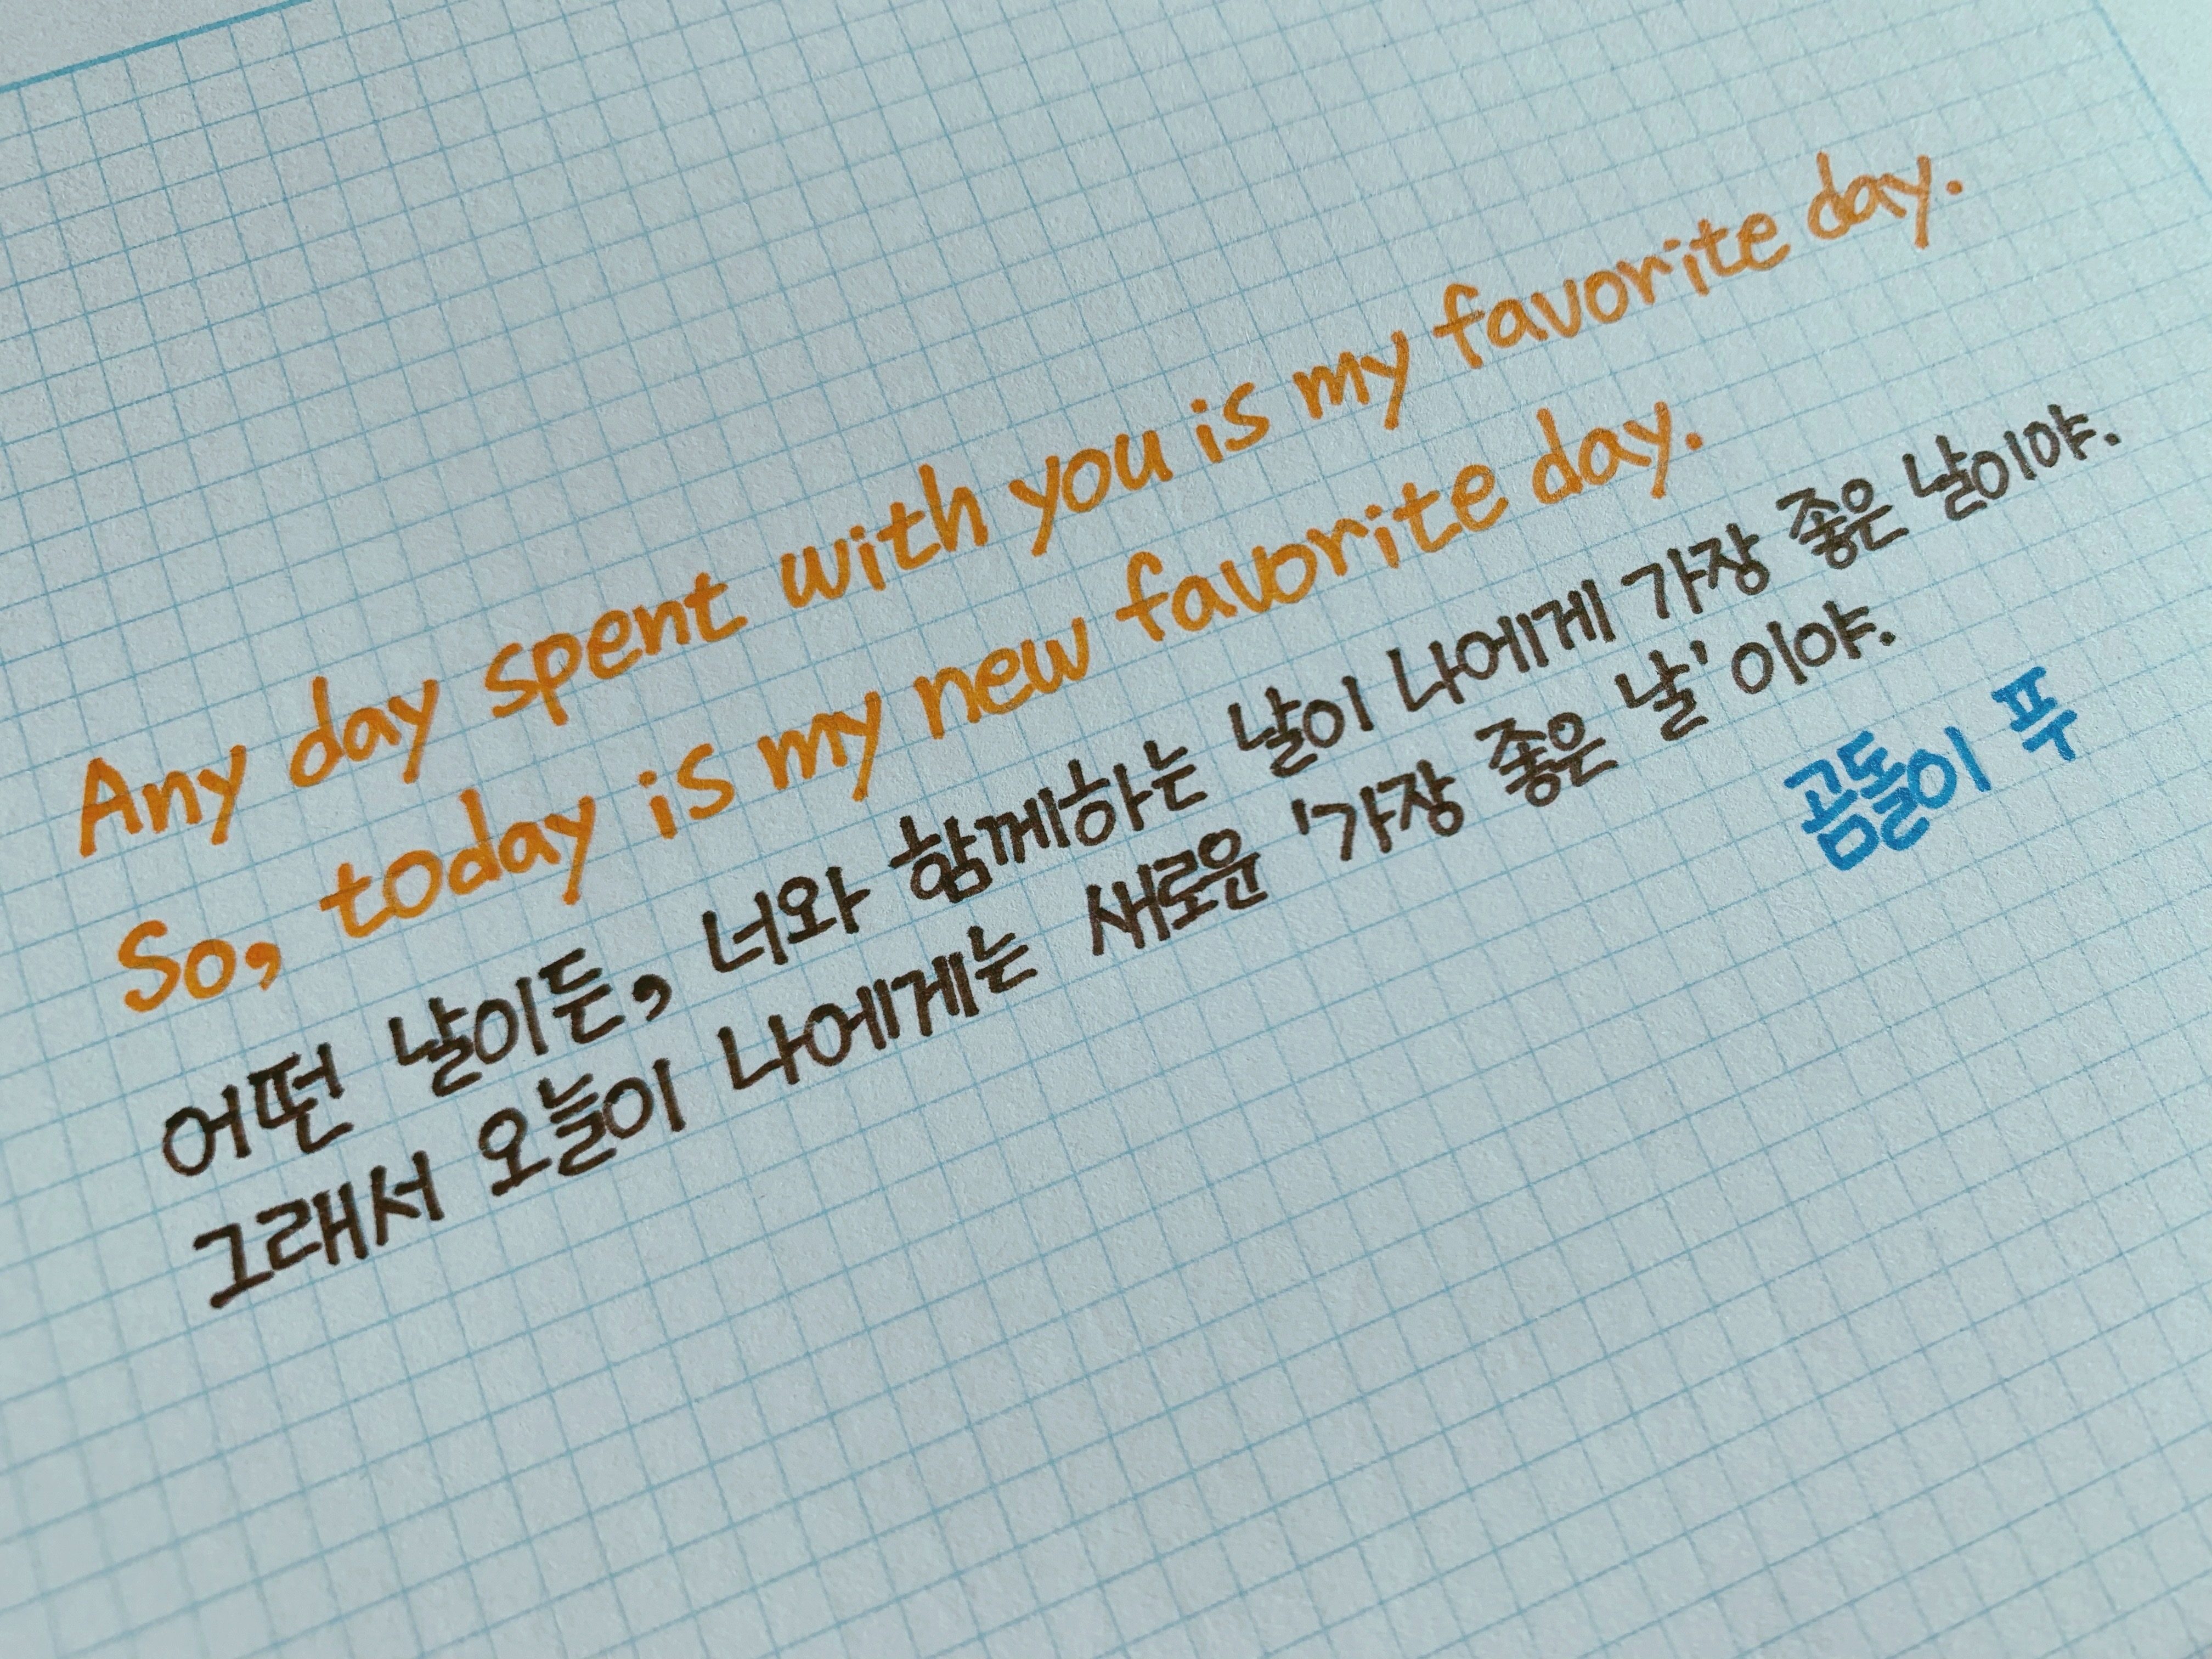 Any day spent with you is my favorite day.
So, today is my new favorite day.
어떤 날이든, 너와 함께하는 날이 나에게 가장 좋은 날이야.
그래서 오늘이 나에게는 새로운 '가장 좋은 날'이야.
곰돌이 푸